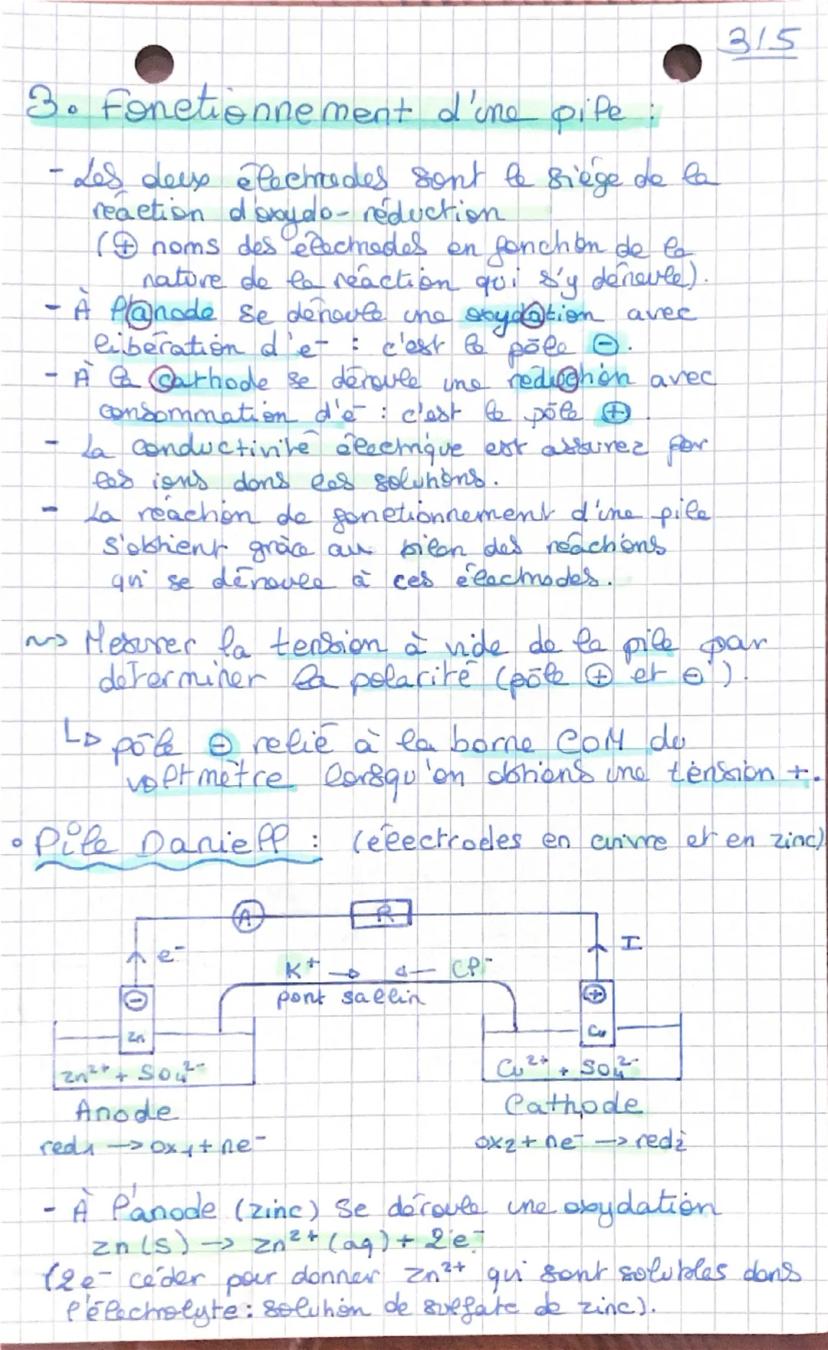 3/5
3. Fonctionnement d'une pile :
- Les deux électrodes sont le siège de la
réaction d'oxydo-réduction
(⊕ noms des électrodes en fonction de la
nature de la réaction qui s'y déroule).
- À l'anode se déroule une oxydation avec
libération d'e- : c'est le pôle ⊖.
- À la cathode se déroule une réduction avec
consommation d'e- : c'est le pôle ⊕
- La conductivité électrique est assurez par
les ions dans les solutions.
- La réaction de fonctionnement d'une pile
s'obtient grâce au bilan des réactions
qui se déroule à ces électrodes.
~> Mesurer la tension à vide de la pile par
déterminer la polarité (pôle ⊕ et ⊖).
↳ pôle ⊖ relié à la borne COM du
voltmètre lorsqu'on obtiens une tension +.
• Pile Daniell : (électrodes en cuivre et en zinc)
A R
e- I
K+ → ← Cl-
pont salin
⊖ ⊕
Zn Cu
Zn²⁺ + SO₄²⁻ Cu²⁺ + SO₄²⁻
Anode Cathode
red1 → ox1 + ne- ox2 + ne- → red2
- À l'anode (zinc) se déroule une oxydation
Zn (s) → Zn²⁺ (aq) + 2e-
(2e- céder pour donner Zn²⁺ qui sont solubles dans
l'électrolyte : solution de sulfate de zinc).